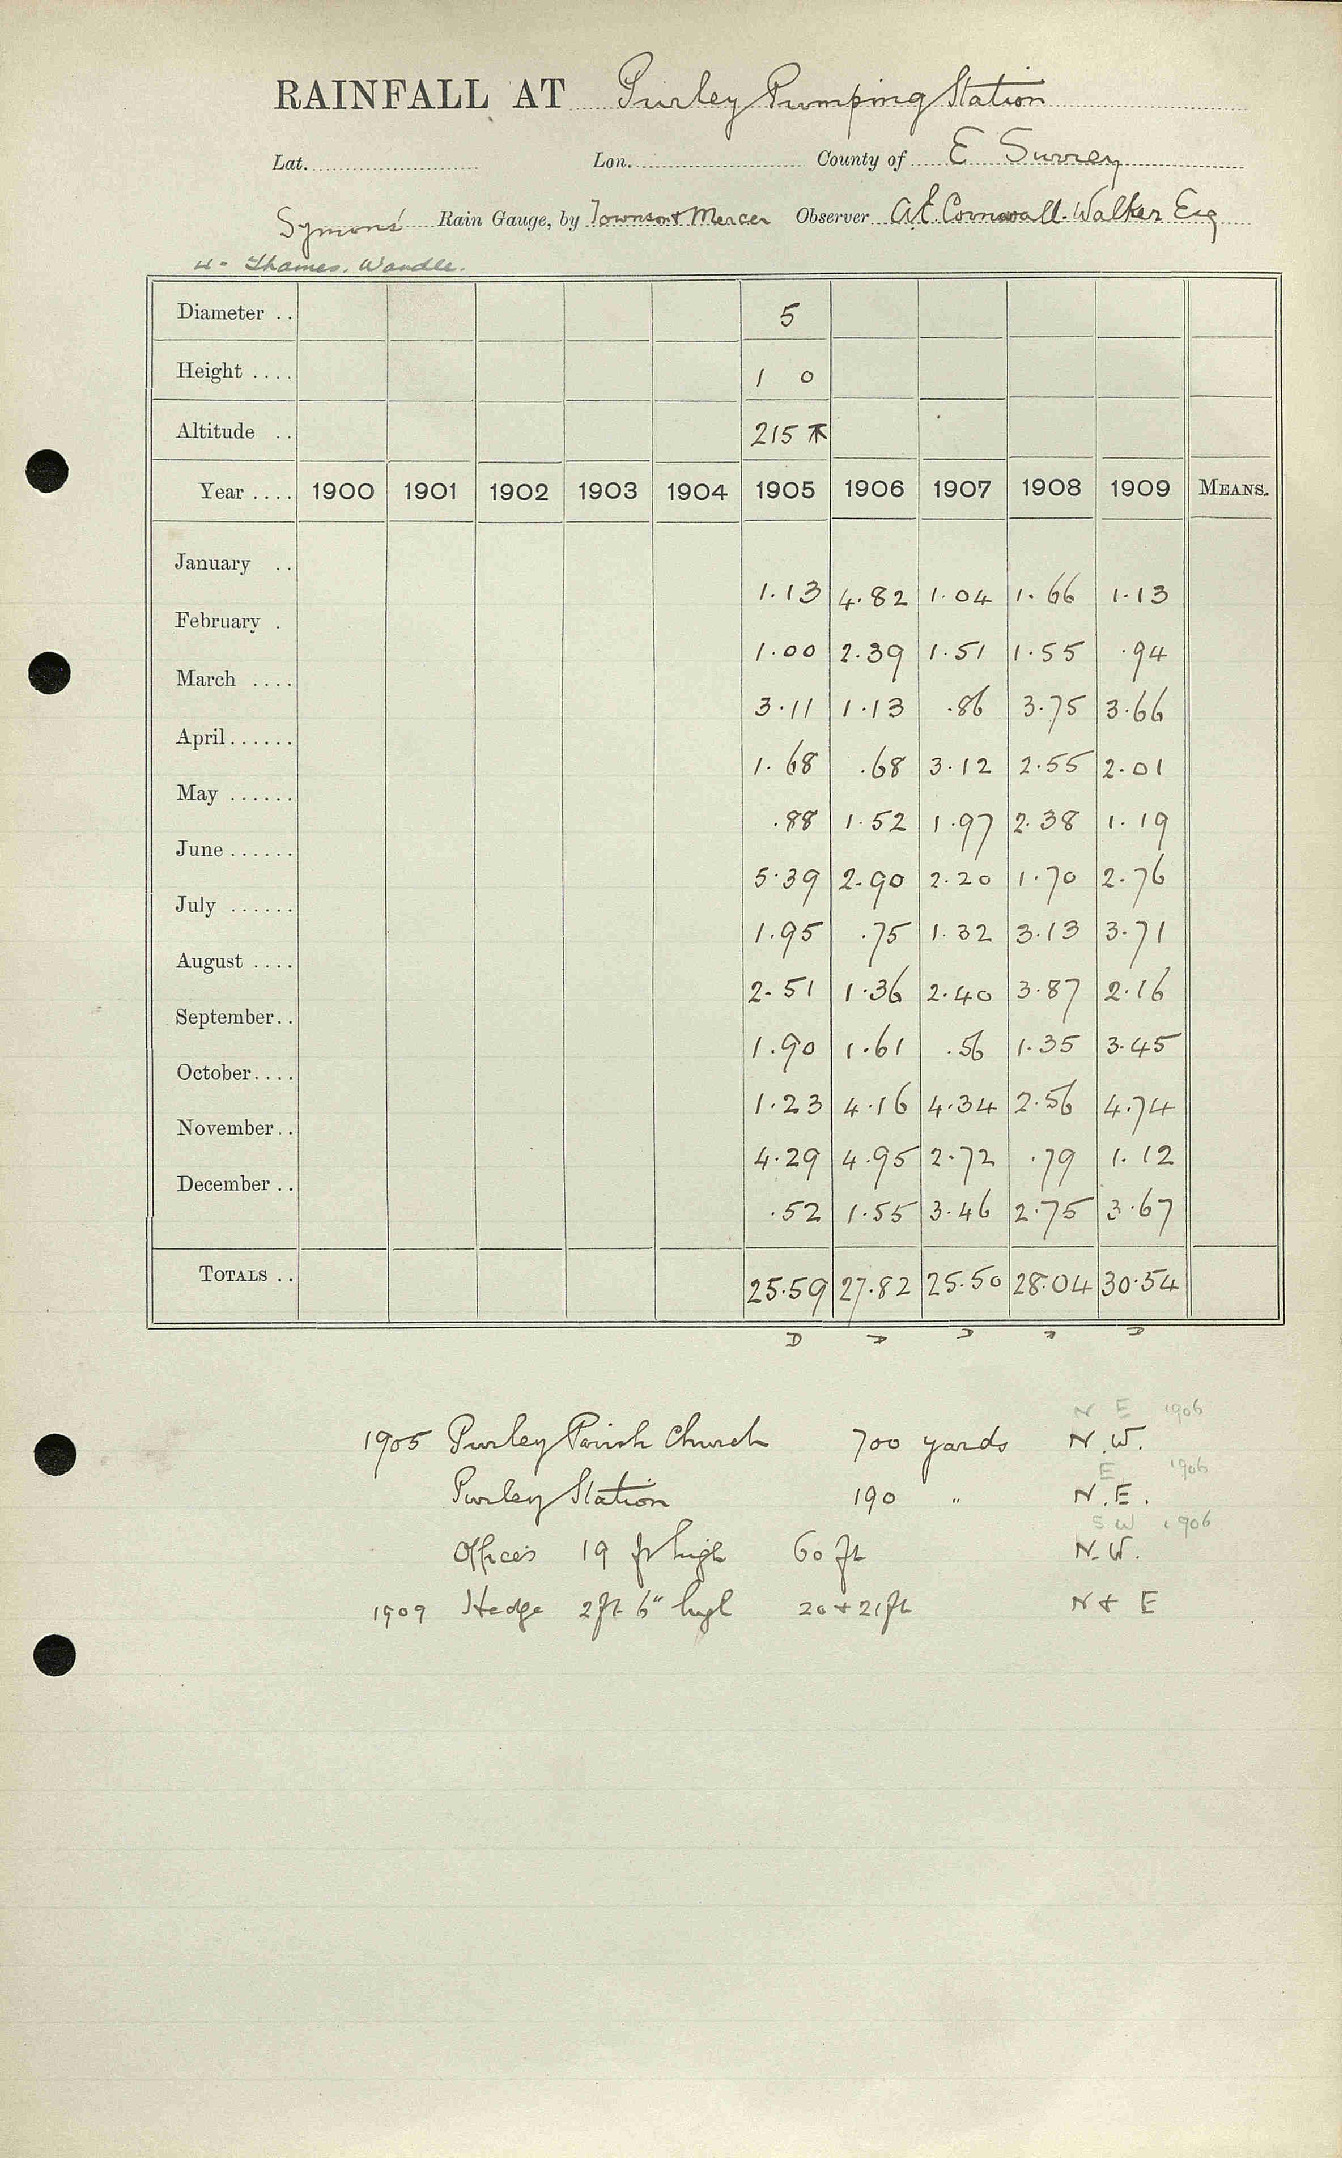 RAINFALL AT Purley Pumping Station
Lat. Lon. County of E Surrey
Symons' Rain Gauge, by Townson & Mercer Observer A.E. Cornwall-Walker Esq
4 - Thames. Wandle.
Diameter .. 5
Height .... 1 0
Altitude .. 215
Year .... 1900 1901 1902 1903 1904 1905 1906 1907 1908 1909 MEANS.
January .. 1.13 4.82 1.04 1.66 1.13
February . 1.00 2.39 1.51 1.55 .94
March .... 3.11 1.13 .86 3.75 3.66
April...... 1.68 .68 3.12 2.55 2.01
May ...... .88 1.52 1.97 2.38 1.19
June ...... 5.39 2.90 2.20 1.70 2.76
July ...... 1.95 .75 1.32 3.13 3.71
August .... 2.51 1.36 2.40 3.87 2.16
September.. 1.90 1.61 .56 1.35 3.45
October.... 1.23 4.16 4.34 2.56 4.74
November.. 4.29 4.95 2.72 .79 1.12
December .. .52 1.55 3.46 2.75 3.67
TOTALS .. 25.59 27.82 25.50 28.04 30.54
D D D D D
N E 1906
1905 Purley Parish Church 700 yards N.W.
E 1906
Purley Station 190 " N.E.
S W 1906
Offices 19 ft high 60 ft N.W.
1909 Hedge 2ft 6" high 20 & 21 ft N & E